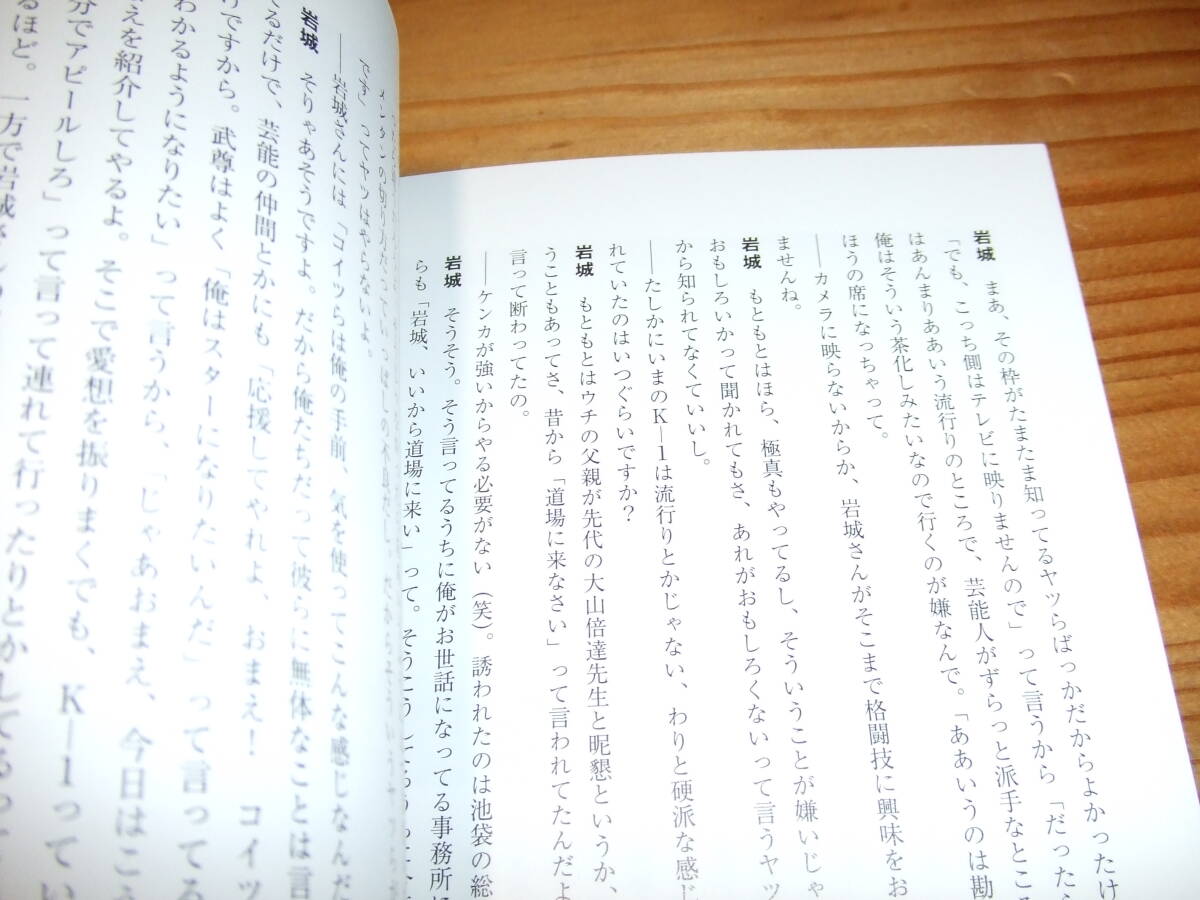 岩城　まあ、その枠がたまたま知ってるヤツらばっかだからよかったけ
「でも、こっち側はテレビに映りませんので」って言うから「だったら
はあんまりああいう流行りのところで、芸能人がずらっと派手なところ
俺はそういう茶化しみたいなので行くのが嫌なんで。「ああいうのは勘
ほうの席になっちゃって。
――カメラに映らないからか、岩城さんがそこまで格闘技に興味をお
ませんね。
岩城　もともとはほら、極真もやってるし、そういうことが嫌いじゃ
おもしろいかって聞かれてもさ、あれがおもしろくないって言うヤツ
から知られてなくていいし。
――たしかにいまのK―1は流行りとかじゃない、わりと硬派な感じ
れていたのはいつぐらいですか？
岩城　もともとはウチの父親が先代の大山倍達先生と昵懇というか、
うこともあってさ、昔から「道場に来なさい」って言われてたんだよ
言って断わってたの。
――ケンカが強いからやる必要がない（笑）。誘われたのは池袋の総
岩城　そうそう。そう言ってるうちに俺がお世話になってる事務所に
らも「岩城、いいから道場に来い」って。そうこうしてろうって
メンタンの切り方だって
です」ってヤツはやらないよ。
――岩城さんには「コイツらは俺の手前、気を使ってこんな感じなんだ
岩城　そりゃあそうですよ。だから俺たちだって彼らに無体なことは言
てるだけで、芸能の仲間とかにも「応援してやれよ、おまえ！　コイツ
けですから。武尊はよく「俺はスターになりたいんだ」って言ってる
わかるようになりたい」って言うから、「じゃあおまえ、今日はこう
えを紹介してやるよ。そこで愛想を振りまくでも、K―1ってい
分でアピールしろ」って言って連れて行ったりとかしてるって
るほど。一方で岩城さ